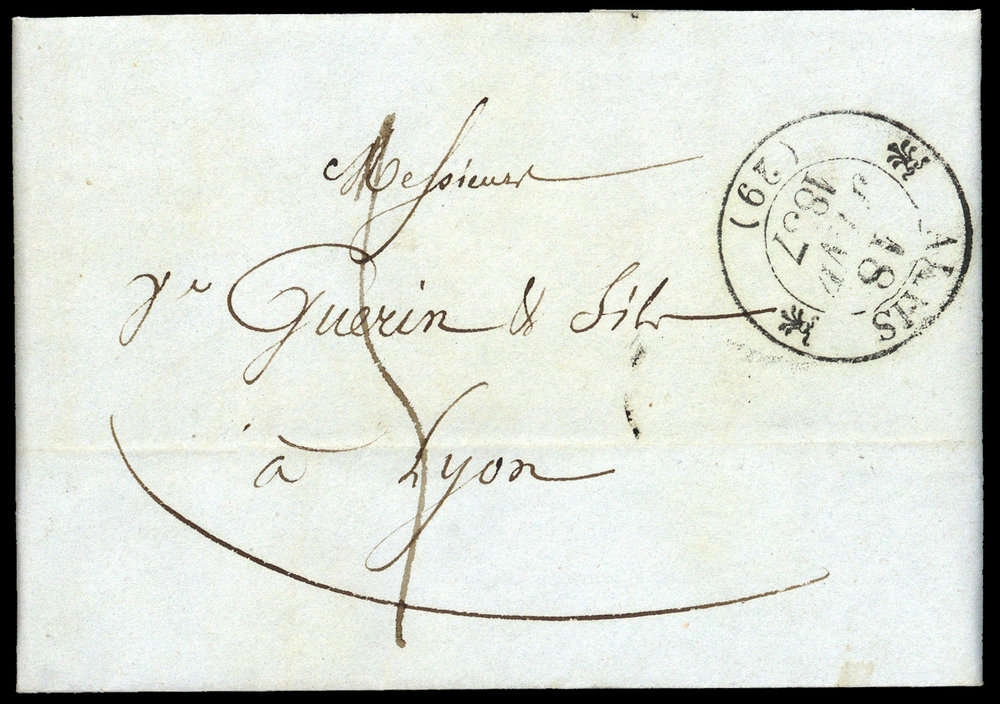 Messieurs
Ve Guerin & fils
à Lyon
ALAIS
18
JANV
1837
(29)